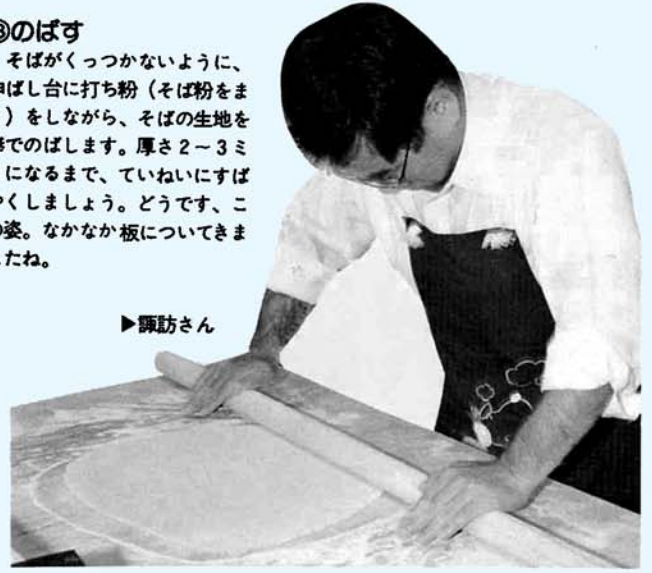 ③のばす
そばがくっつかないように、
伸ばし台に打ち粉（そば粉をま
）をしながら、そばの生地を
棒でのばします。厚さ2～3ミ
になるまで、ていねいにすば
やくしましょう。どうです、こ
の姿。なかなか板についてきま
したね。
▶諏訪さん